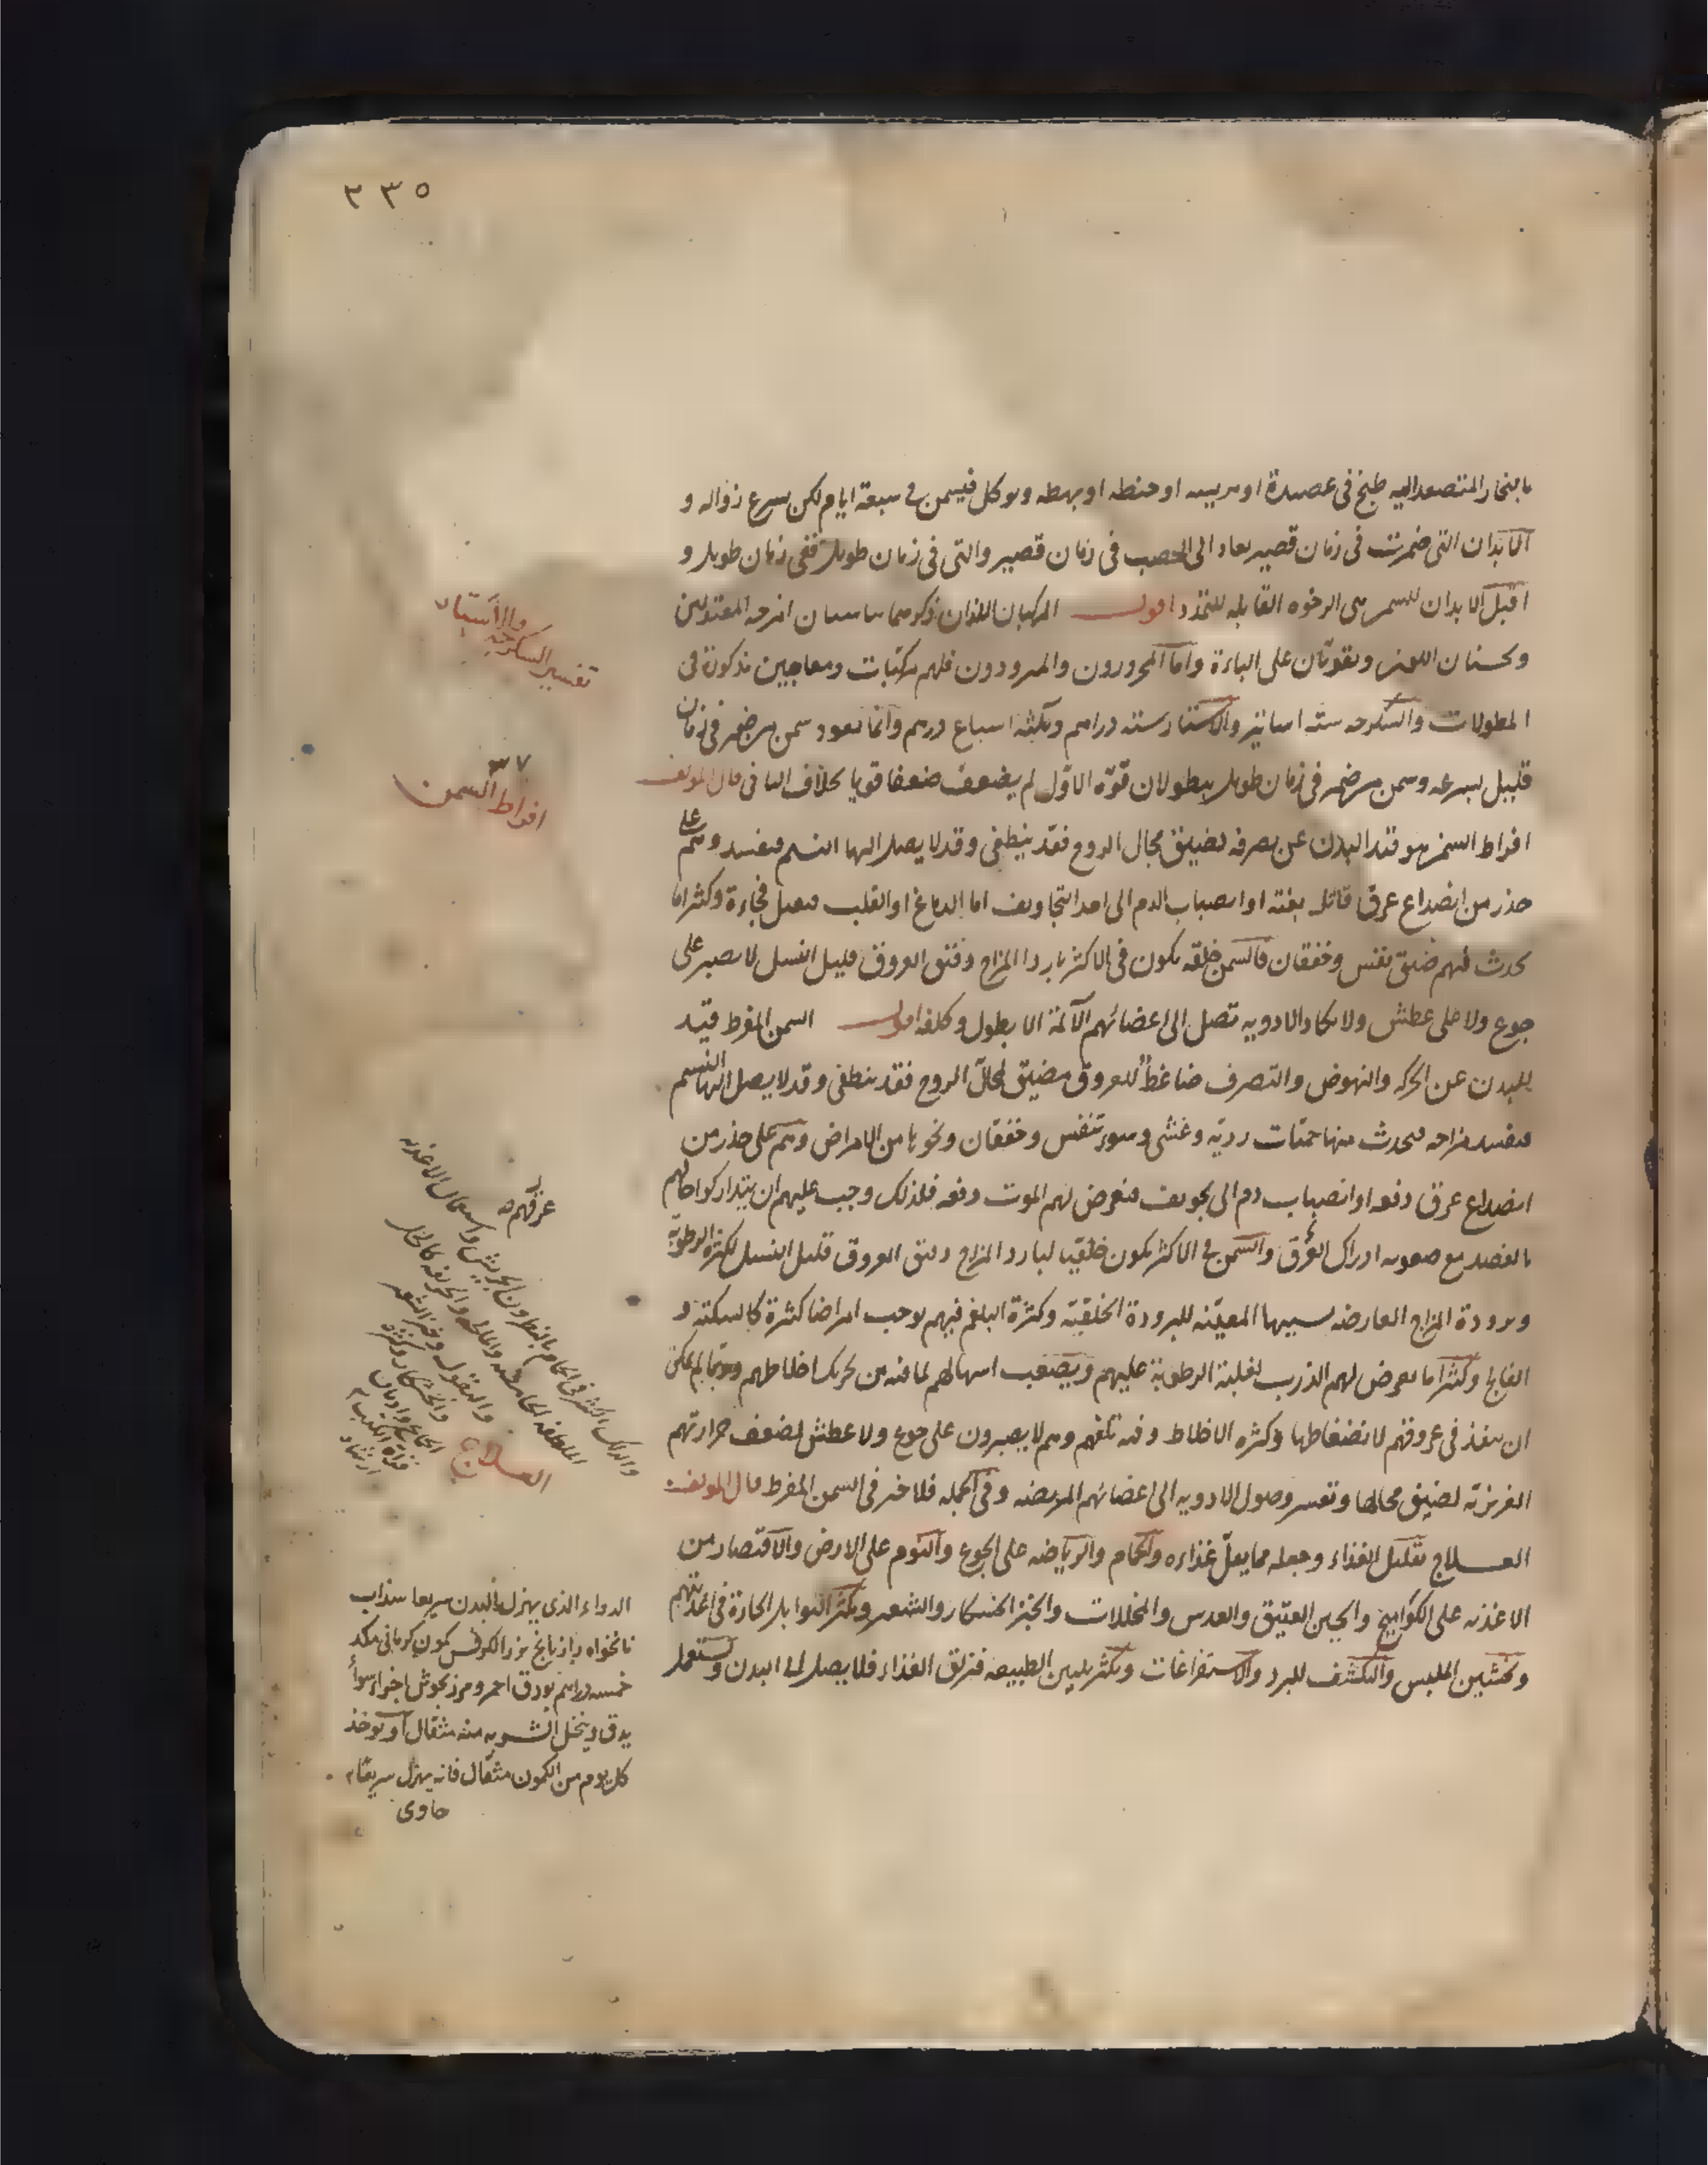 ٣٣٥
بالبخار المتصعد اليه طبخ فى عصيدة او هريسه او حنطه او بهطه ويوكل فيسمن فى سبعة ايام لكن يسرع زواله و
الابدان التى ضمرت فى زمان قصير يعاد الى الخصب فى زمان قصير والتى فى زمان طويل ففى زمان طويل و
اقبل الابدان للسمن هى الرخوه القابله للتمدد اقول المركبان اللذان ذكرهما يناسبان امزجه المعتدلين
ويحسنان اللون ويقويان على الباءة واما المحرورون والمبرودون فلهم مركبات ومعاجين مذكورة فى
المطولات والسكرجه ستة اساتير والاستار ستة دراهم وثلثة اسباع درهم وانما يعود سمن من ضمر فى زمان
قليل بسرعه وسمن من ضمر فى زمان طويل ببطو لان قوّه الاوّل لم يضعف ضعفا قويا بخلاف الثانى قال المولف
افراط السمن هو قيد البدن عن تصرفه لضيق مجال الروح فقد ينطفى وقد لا يصل اليها النسيم فيفسد وهم على
حذر من انصداع عرق قاتل بغتة او انصباب الدم الى احد التجاويف اما الدماغ او القلب فيقتل فجاءة وكثيرا ما
يحدث فيهم ضيق نفس وخفقان فالسمن خلقه يكون فى الاكثر بارد المزاج دقيق العروق قليل النسل لا يصبر على
جوع ولا على عطش ولا يكاد الادويه تصل الى اعضائهم الآلمة الا بطول وكلفه اقول السمن المفرط قيد
للبدن عن الحركه والنهوض والتصرف ضاغط للعروق مضيق لمجال الروح فقد ينطفى وقد لا يصل اليها النسيم
فيفسد مزاجه فيحدث منها حميات رديّه وغشى وسوء تنفس وخفقان ونحوها من الامراض وهم على حذر من
انصداع عرق دفعه او انصباب دم الى تجويف فيعرض لهم الموت دفعه فلذلك وجب عليهم ان يتداركوا حالهم
بالفصد مع صعوبه ادراك العرق والسمن فى الاكثر يكون خلقيا لبارد المزاج دقيق العروق قليل النسل لكثرة الرطوبة
وبرودة المزاج العارضه بسببها المعيّنه للبرودة الخلقيّه وكثرة البلغم فيهم يوجب امراضا كثيرة كالسكته و
الفالج وكثيرا ما يعرض لهم الذرب لغلبة الرطوبة عليهم ويصعب اسهالهم لما فيه من تحريك اخلاطهم وربما لم يمكن
ان ينفذ فى عروقهم لانضغاطها وكثره الاخلاط وفيه تلفهم وهم لا يصبرون على جوع ولا عطش لضعف حرارتهم
الغريزيّة لضيق مجالها وتعسر وصول الادويه الى اعضائهم المريضه وفى الجمله فلا خير فى السمن المفرط قال المولف
العلاج تقليل الغذاء وجعله مما يقلّ غذاوه والحمام والرياضه على الجوع والنوم على الارض والاقتصار من
الاغذيه على الكواميخ والجبن العتيق والعدس والمخللات والخبز الخشكار والشعير ويكثر التوابل الحارة فى اغذيتهم
وتخشين الملبس والتكشف للبرد والاستفراغات ويكثر تليين الطبيعه فيزلق الغذاء فلا يصل الى البدن ويستعمل
تفسير السكرجه
والاستار
٣٧
افراط السمن
عرقهم
والدلك الكثير فى الحمام بالنطرون الجريش واستعمال الاغذيه
العلاج
الدواء الذى يهزل البدن سريعا سذاب
نانخواه رازيانج بزر الكرفس كمون كرمانى
خمسه دراهم بورق احمر ومرزنجوش اجزاء سواءً
يدق وينخل الشربه منه مثقال او يوخذ
كل يوم من الكمون مثقال فانه يهزل سريعا
حاوى